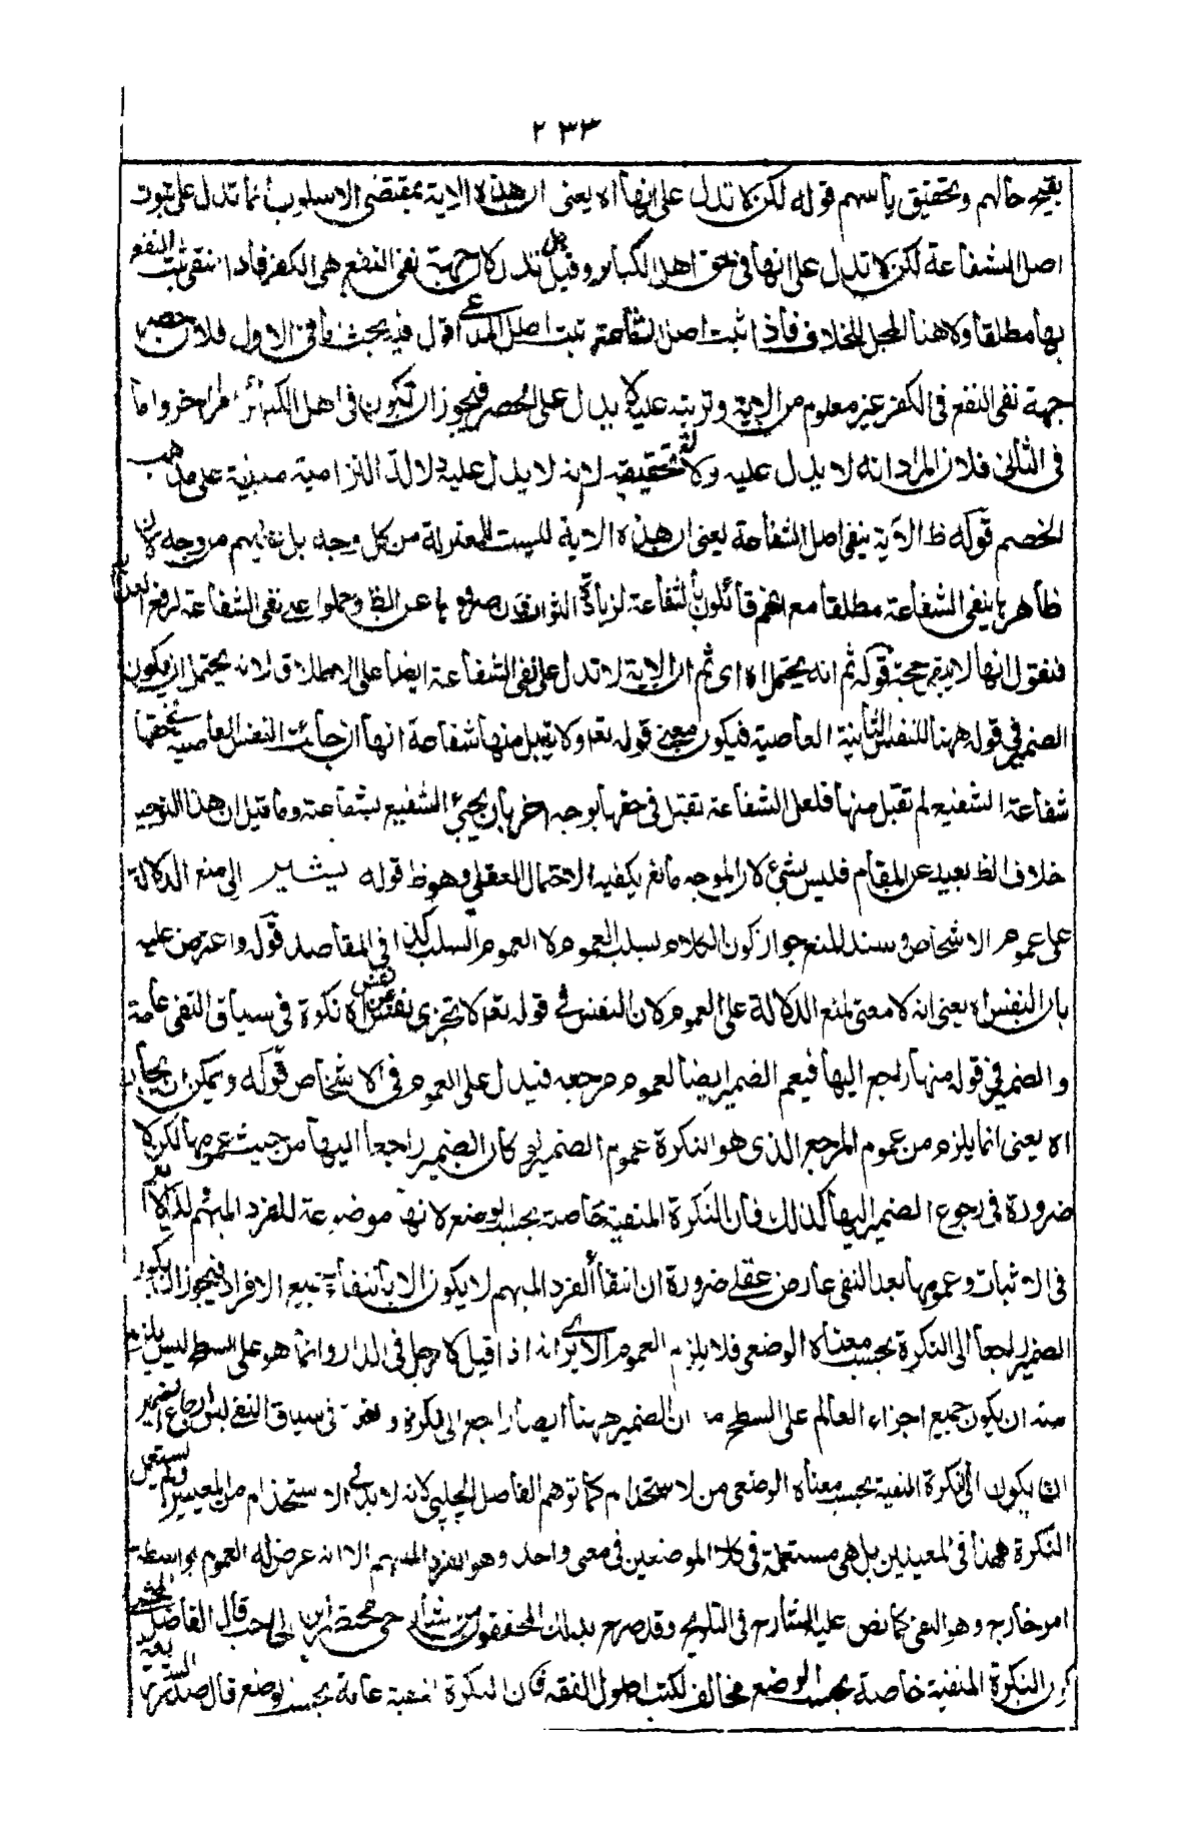 ٢٣٣
بقبيح حالهم وتحقيق يأسهم قوله لكن لا تدل على انها اه يعنى ان هذه الاية بمقتضى الاسلوب انما تدل على ثبوت
اصل الشفاعة لكن لا تدل على انها فى حق اهل الكبائر وقيل بل تدل لان جهة نفى النفع هى الكفر فاذا انتفى ثبت النفع
بها مطلقا ولا هنا المحل للخلاف فاذا ثبت اصل الشفاعة ثبت اصل المدعى اقول فيه بحث اما فى الاول فلان حصر
جهة نفى النفع فى الكفر غير معلوم من الاية وترتبه عليه لا يدل على الحصر فيجوز ان تكون فى اهل الكبائر امرا اخر واما
فى الثانى فلان المراد انه لا يدل عليه ولو تحقيقه لانه لا يدل عليه دلالة التزامية مبنية على مذهب
الخصم قوله ظ الاية ينفى اصل الشفاعة يعنى ان هذه الاية ليست للمعتزلة من كل وجه بل عليهم من وجه لان
ظاهرها ينفى الشفاعة مطلقا مع انهم قائلون بالشفاعة لزيادة الثواب صرفوها عن الظ وحملوا على نفى الشفاعة لرفع العذاب
فنقول انها لا يتم حجة قوله ثم انه يحتمل اه اى ثم ان الاية لا تدل على نفى الشفاعة ايضا على الاطلاق لانه يحتمل ان يكون
الضمير فى قوله ههنا للنفس الثانية العاصية فيكون معنى قوله تعه ولا يقبل منها شفاعة انها ان جائت النفس العاصية
شفاعة الشفيع لم تقبل منها فلعل الشفاعة تقبل فى حقها بوجه اخر بان يجئ الشفيع لشفاعته وما قيل ان هذا التوجيه
خلاف الظ بعيد عن المقام فليس بشئ لان الموجه مانع يكفيه الاحتمال العقلى وهو ظ قوله يشير الى منع الدلالة
على عموم الاشخاص وسند المنع جواز كون الكلام لسلب العموم لا لعموم السلب كذا فى المقاصد قوله واعترض عليه
بان النفس اه يعنى انه لا معنى لمنع الدلالة على العموم لان النفس فى قوله تعه لا تجزى نفس عن نفس اه نكرة فى سياق النفى عامة
والضمير فى قوله منها راجع اليها فيعم الضمير ايضا لعموم مرجعه فيدل على العموم فى الاشخاص قوله ويمكن ان يجاب
اه يعنى انما يلزم من عموم المرجع الذى هو النكرة عموم الضمير لو كان الضمير راجعا اليها من حيث عمومها لكن لا
ضرورة فى رجوع الضمير اليها كذلك فان النكرة المنفية خاصة بحسب الوضع لانها موضوعة للفرد المبهم
فى الاثبات وعمومها بعد النفى عارض عقلى ضرورة ان انتفاء الفرد المبهم لا يكون الا بانتفاء جميع الافراد فيجوز ان يكون
الضمير راجعا الى النكرة بحسب معناه الوضعى فلا يلزم العموم الا يرى انه اذا قيل لا رجل فى الدار وانما هو على السطح ليس يلزم
منه ان يكون جميع اجزاء العالم على السطح ان الضمير ههنا ايضا راجع الى نكرة فى سياق النفى ليس ارجاع الضمير
الى النكرة المنفية بحسب معناه الوضعى من الاستخدام كما توهم الفاضل الجلبى لانه لا بد فى الاستخدام من المعنيين ولم يستعمل
النكرة ههنا فى المعنيين بل هى مستعملة فى كلا الموضعين فى معنى واحد وهو الفرد المبهم الا انه عرض له العموم بواسطة
امر خارج وهو النفى كما نص عليه الشارح فى التلويح وقد صرح بذلك المحققون من شارحى مختصر ابن الحاجب قال الفاضل المحشى
كون النكرة المنفية خاصة بحسب الوضع مخالف لكتب اصول الفقه فان النكرة المنفية عامة بحسب الوضع قال صدر الشريعة